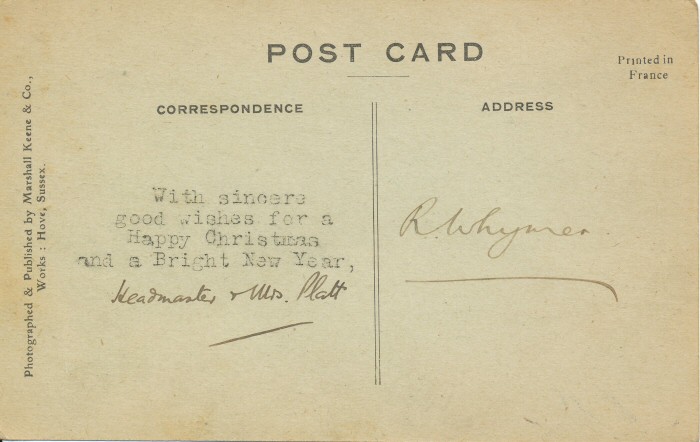 POST CARD
Printed in
France
CORRESPONDENCE
ADDRESS
Photographed & Published by Marshall Keene & Co.,
Works : Hove, Sussex.
With sincere
good wishes for a
Happy Christmas
and a Bright New Year,
Headmaster & Mrs. Platt
R. Whymer.